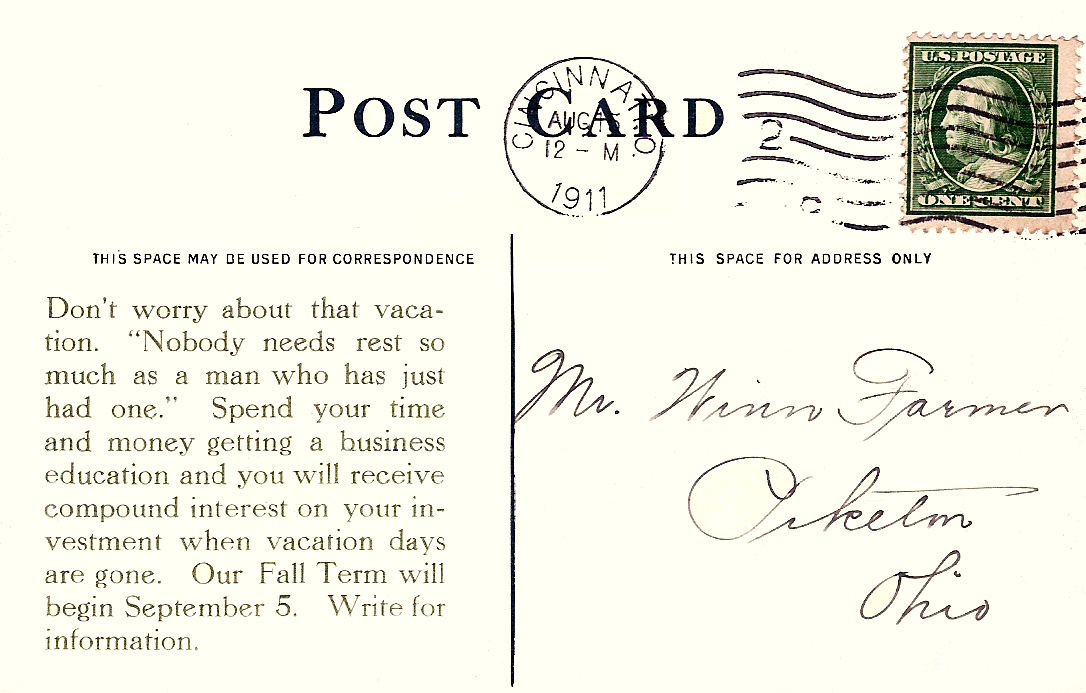 U.S. POSTAGE
ONE CENT
POST CARD
CINCINNATI, O.
AUG 15
12 - M
1911
2
C
THIS SPACE MAY BE USED FOR CORRESPONDENCE
Don't worry about that vaca-
tion. “Nobody needs rest so
much as a man who has just
had one.” Spend your time
and money getting a business
education and you will receive
compound interest on your in-
vestment when vacation days
are gone. Our Fall Term will
begin September 5. Write for
information.
THIS SPACE FOR ADDRESS ONLY
Mr. Winn Farmer
Piketon
Ohio